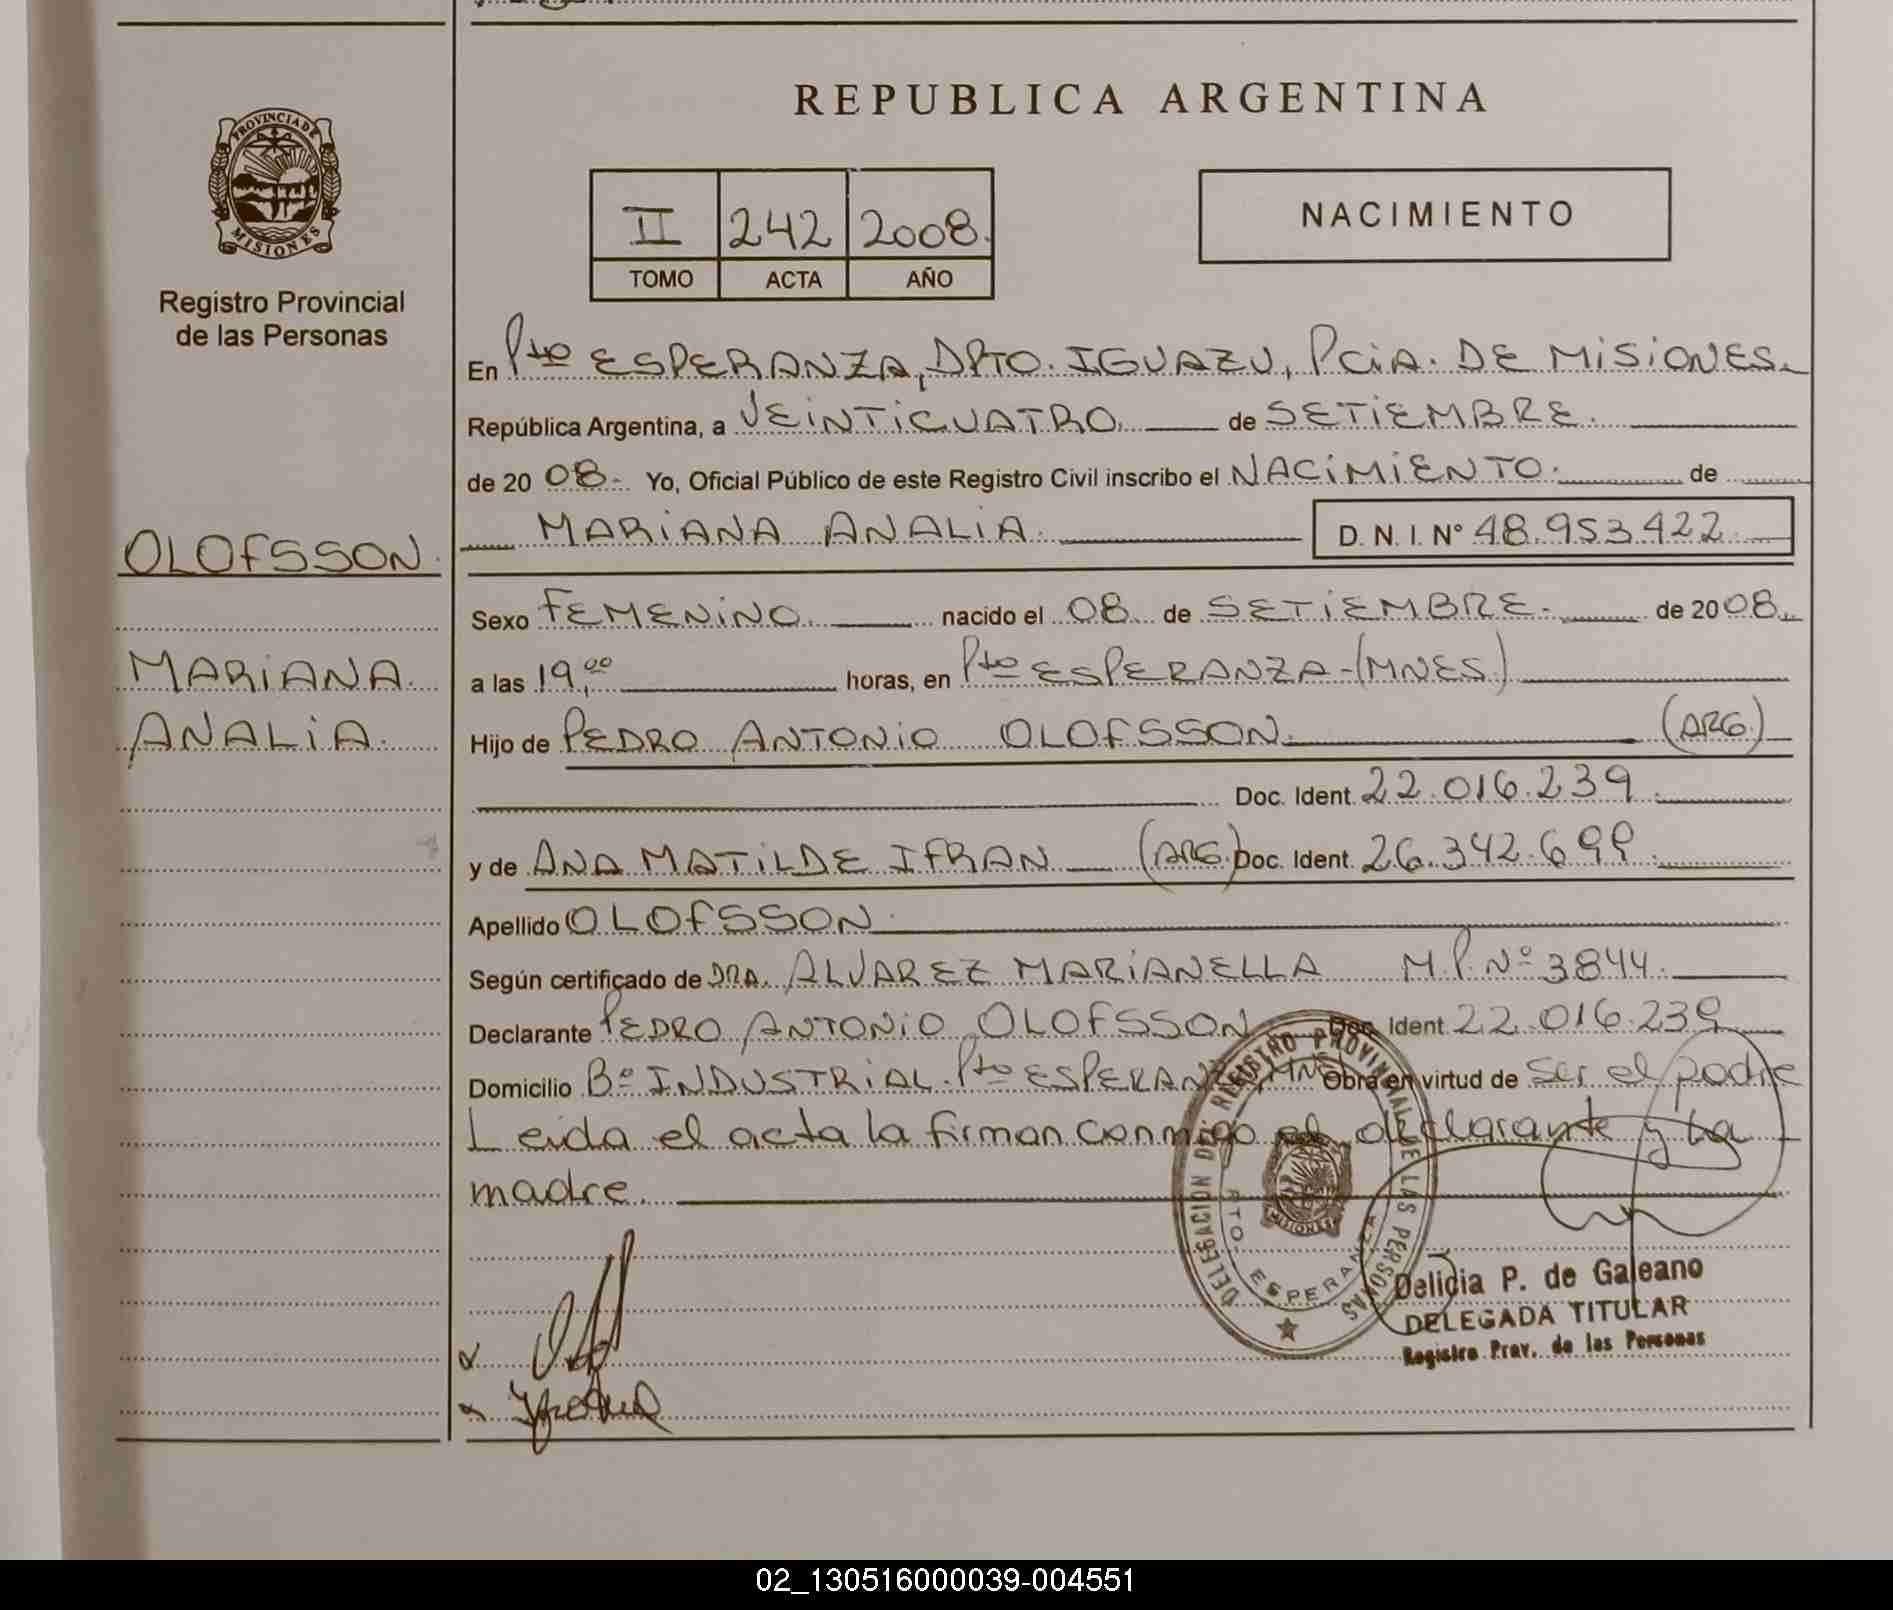 REPUBLICA ARGENTINA
PROVINCIA DE MISIONES
Registro Provincial
de las Personas
II 242 2008.
TOMO ACTA AÑO
NACIMIENTO
En Pto ESPERANZA, DPTO. IGUAZU, PCiA. DE MiSiONES.
República Argentina, a VEiNTiCUATRO. de SETiEMBRE.
de 2008.- Yo, Oficial Público de este Registro Civil inscribo el NACiMiENTO. de
MARiANA ANALiA. D. N. I. N° 48.953.422.
OLOFSSON.
MARiANA.
ANALiA.
Sexo FEMENiNO. nacido el 08 de SETiEMBRE. de 2008.
a las 19,00 horas, en Pto ESPERANZA-(MNES.)
Hijo de PEDRO ANTONiO OLOFSSON. (ARG.)
Doc. Ident. 22.016.239.
y de ANA MATiLDE IFRAN (ARG.) Doc. Ident. 26.342.699.
Apellido OLOFSSON.
Según certificado de DRA. ALVAREZ MARiANELLA M.P. N° 3844.
Declarante PEDRO ANTONiO OLOFSSON Doc. Ident. 22.016.239
Domicilio B° INDUSTRiAL. Pto ESPERANZA, MNES. Obra en virtud de ser el padre
Leida el acta la firman conmigo el declarante y la
madre.
DELEGACION DEL REGISTRO PROVINCIAL DE LAS PERSONAS
PTO. ESPERANZA
MISIONES
Delicia P. de Galeano
DELEGADA TITULAR
Registro Prov. de las Personas
02_130516000039-004551